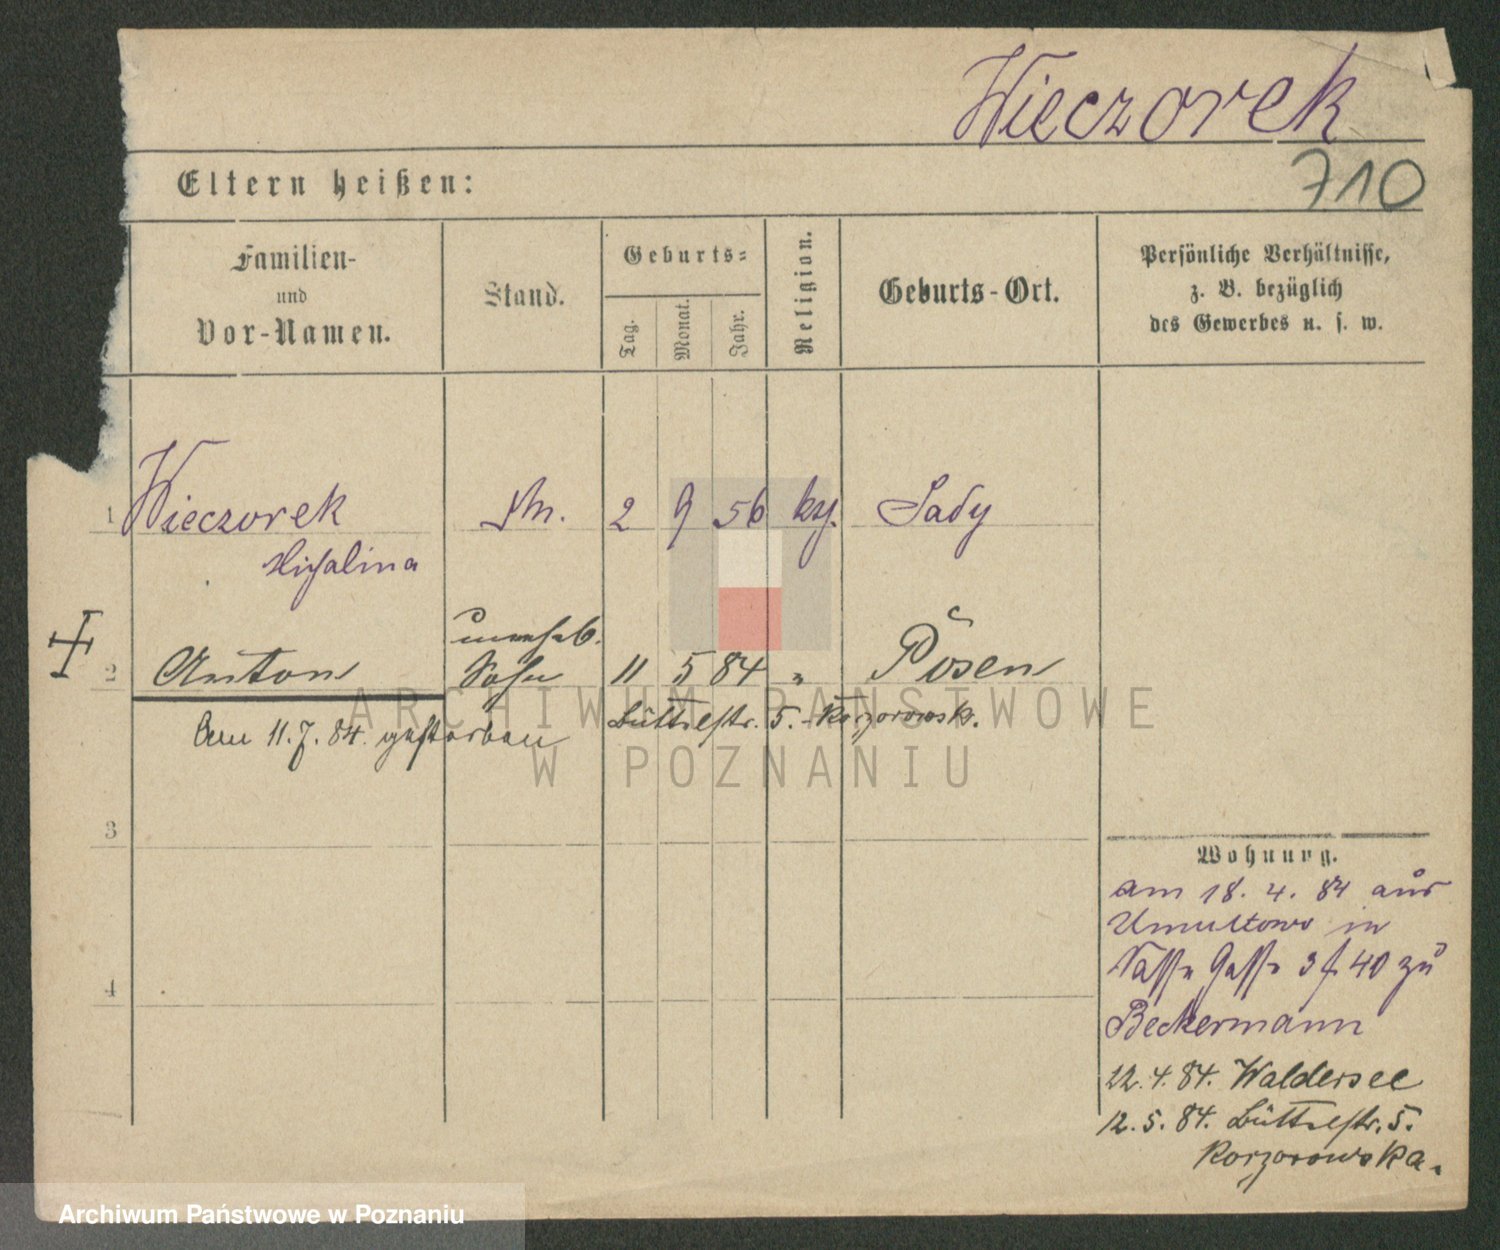 Wieczorek
710
Eltern heißen:
Familien-
und
Vor-Namen.
Stand.
Geburts-
Tag.
Monat.
Jahr.
Religion.
Geburts-Ort.
Persönliche Verhältnisse,
z. B. bezüglich
des Gewerbes u. s. w.
1 Wieczorek 2 9 56 Sady
Michalina
unehel.
2 Anton Sohn 11 5 84 " Posen
Am 11.7.84. gestorben
Büttelstr. 5. - Korzorowsk.
3
4
Wohnung.
am 18. 4. 84 aus
Umultowo in
Nasse Gasse 3 40 zu
Beckermann
22.4.84. Waldersee
12.5.84. Büttelstr. 5.
Korzorowska.
ARCHIWUM PAŃSTWOWE
W POZNANIU
Archiwum Państwowe w Poznaniu